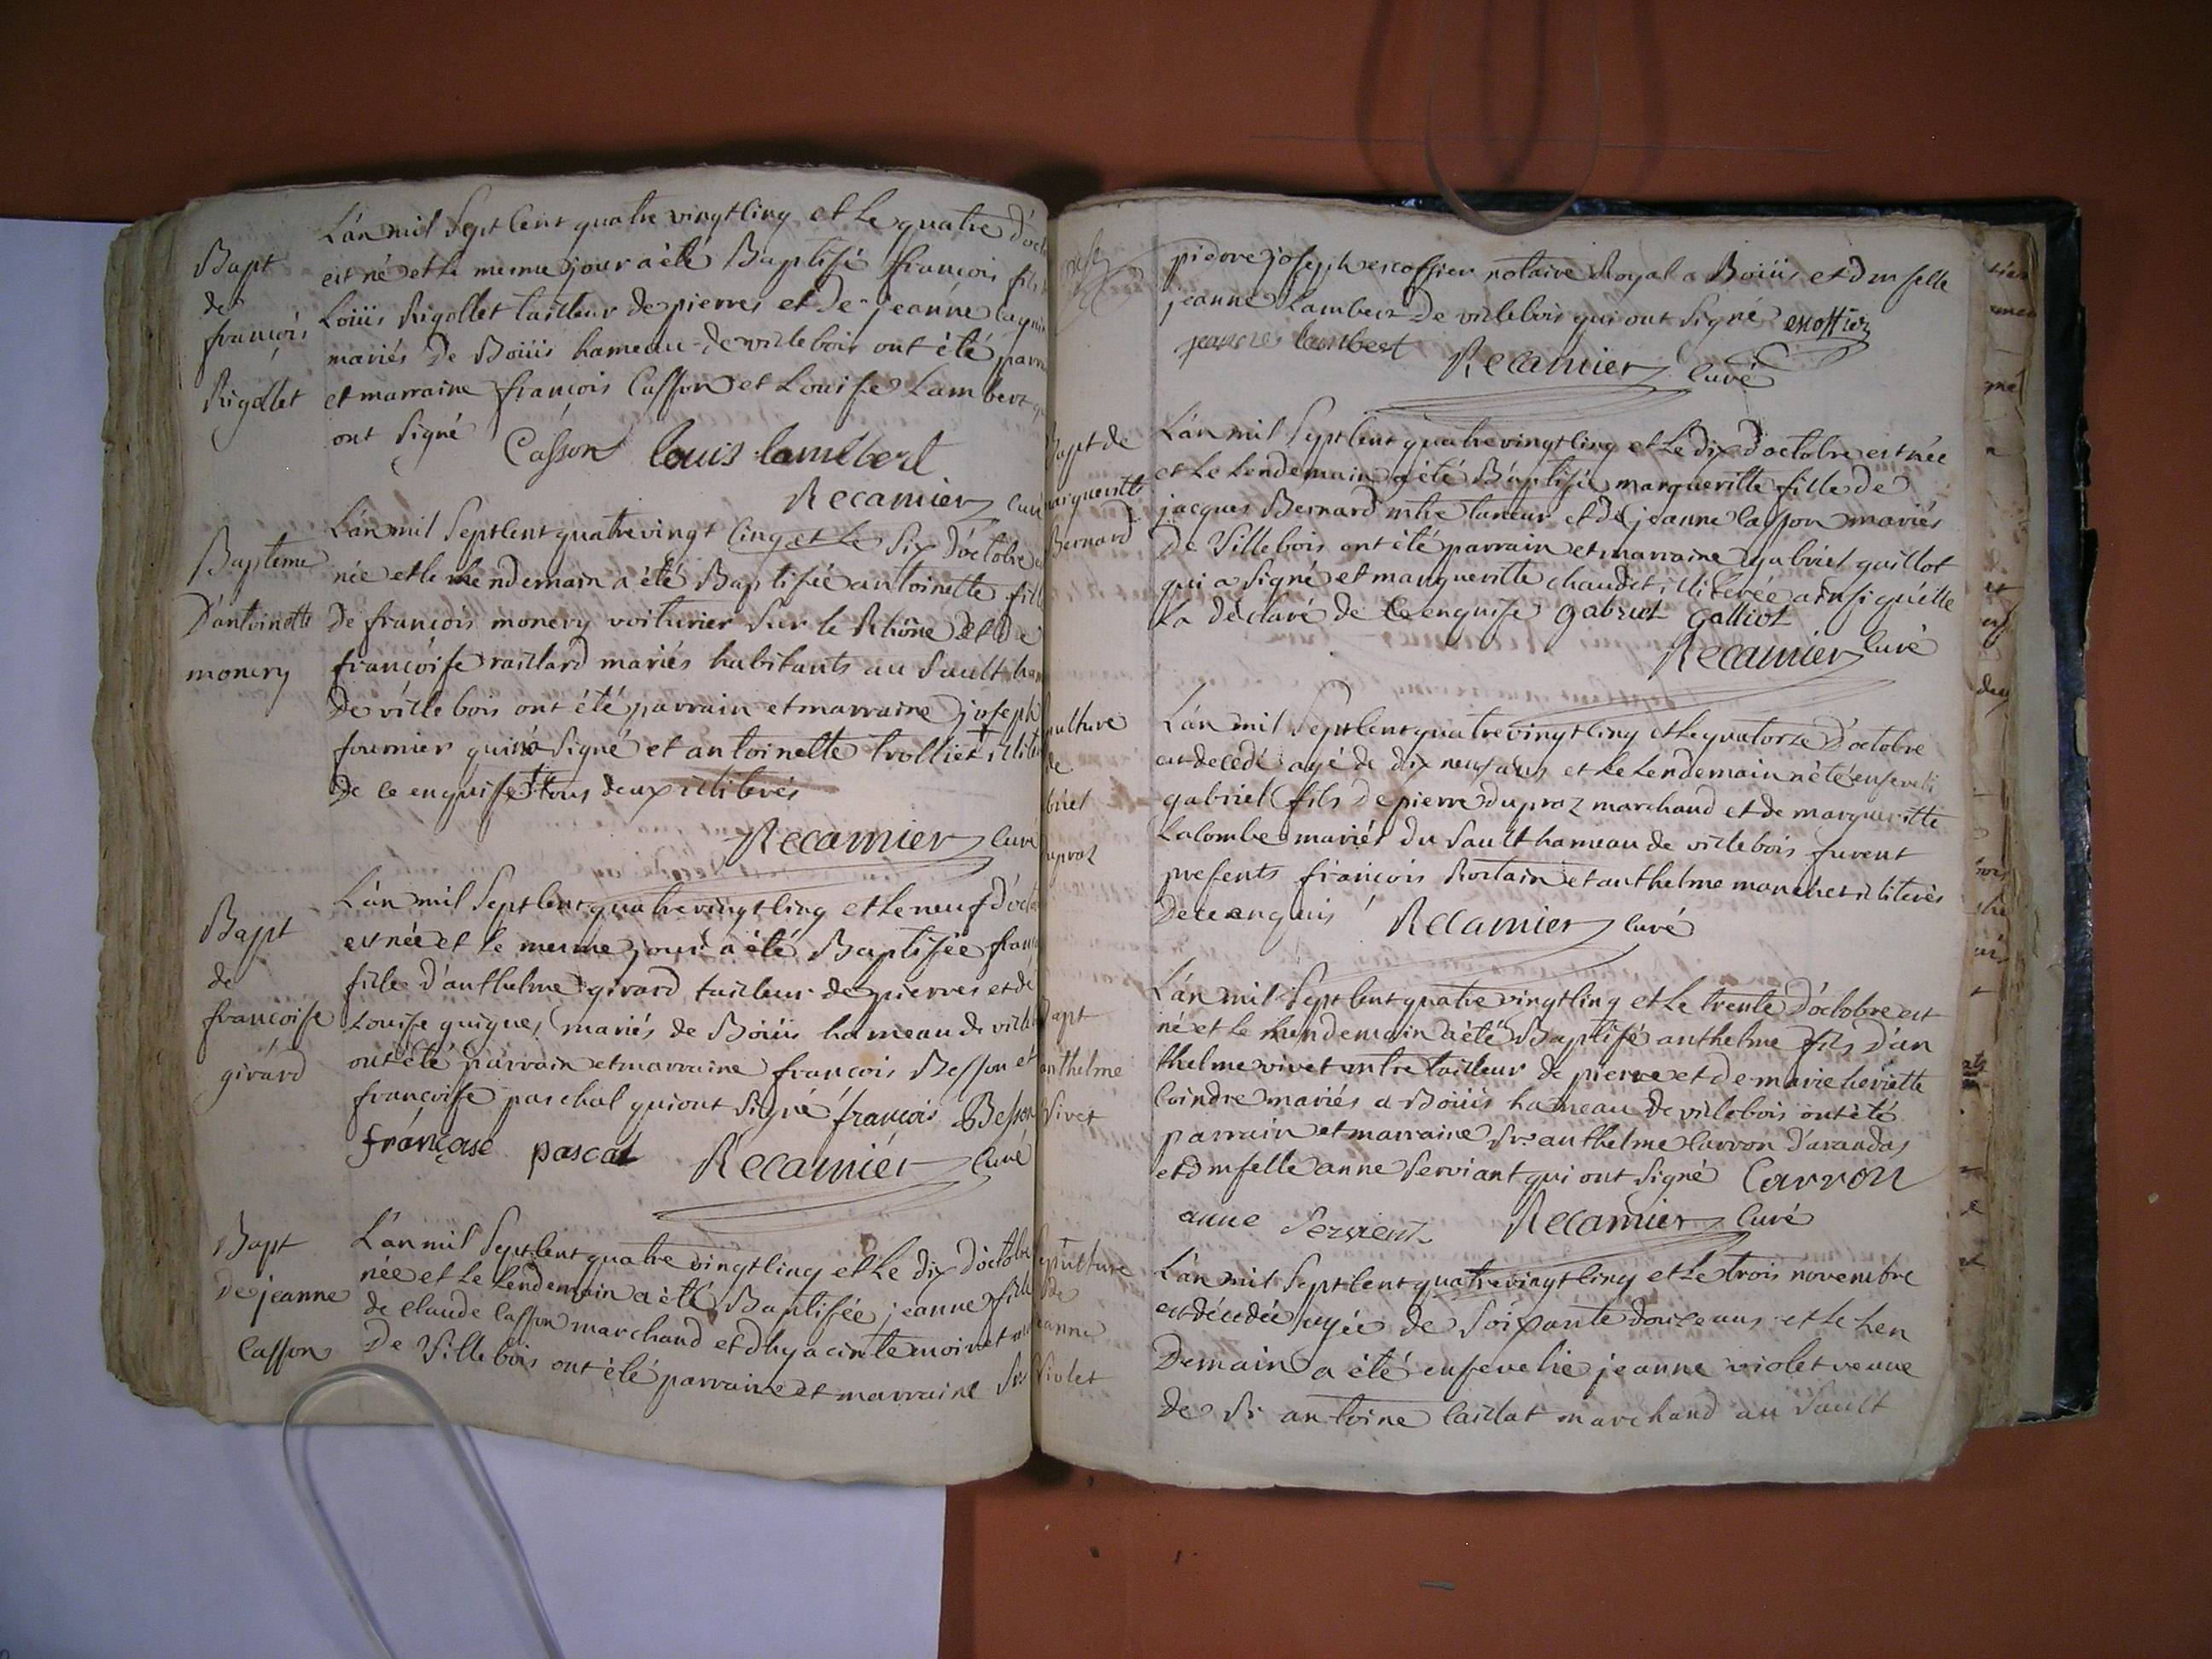 Bapt
de
françois
Rigollet
L'an mil Sept Cent quatre vingt Cinq et Le quatre d'oct
est né et le mesme jour a été Baptisé françois fils
Loüis Rigollet tailleur de pierres et de jeanne
mariés De Boüis hameau de villebois ont été parra
et marraine françois Casson et Louise Lambert
ont signé Casson louis lambert
Recamier Curé
Bapteme
D'antoinette
monery
L'an mil Sept Cent quatre vingt Cinq et Le Six d'octobre
née et le lendemain a été Baptisée antoinette fille
de françois monery voiturier Sur le Rhône et de
françoise raillard mariés habitants au Sault ham
De ville bois ont été parrain et marraine joseph
fournier qui Signé et antoinette trolliet illiter
De ce enquise tous deux illiterés
Recamier Curé
Bapt
de
françoise
girard
L'an mil Sept Cent quatre vingt Cinq et Le neuf d'octo
est née et le mesme jour a été Baptisée franç
fille d'anthelme girard tailleur de pierres et de
Louise guigues mariés de Boüis hameau de ville
ont été parrain et marraine françois Besson et
françoise paschal qui ont signé françois Besson
françoise pascal Recamier Curé
Bapt
De jeanne
Casson
L'an mil Sept Cent quatre vingt Cinq et Le dix d'octobre
née et Le Lendemain a été Baptisée jeanne fille
de Claude Casson marchand et d'hyacinte moinet
De Villebois ont été parrain et marraine Sr
pidore joseph escoffier notaire Royal a Boüis et dmselle
jeanne Lambert De villebois qui ont Signé escoffier
lambert Recamier Curé
Bapt de
marguerite
Bernard
L'an mil Sept Cent quatre vingt Cinq et Le dix d'octobre est née
et Le Lendemain a été Baptisée marguerite fille de
jacques Bernard mtre taneur et de jeanne Casson mariés
De Villebois ont été parrain et marraine gabriel guillot
qui a Signé et marguerite chaudet illiterée ainsi qu'elle
La déclaré de Ce enquise gabriel galliot
Recamier Curé
pulture
de
briel
upraz
L'an mil Sept Cent quatre vingt Cinq et Le quatorze D'octobre
est decedé agé de dix neuf ans et Le Lendemain a été enseveli
gabriel fils De pierre dupraz marchand et de marguerite
Lalombe mariés du Sault hameau de villebois furent
presents françois Rostain et anthelme illiterés
De ce enquis Recamier Curé
Bapt
anthelme
Vivet
L'an mil Sept Cent quatre vingt Cinq et Le trente D'octobre est
né et Le Lendemain a été Baptisé anthelme fils D'an
thelme vivet mtre tailleur de pierre et de marie heriette
Coindre mariés a Boüis hameau De villebois ont été
parrain et marraine Sr anthelme Carron d'arandas
et dmselle anne Serviant qui ont Signé Carron
anne Servient Recamier Curé
pulture
De
jeanne
Violet
L'an mil Sept Cent quatre vingt Cinq et Le trois novembre
est décedée agée de Soixante douze ans et le Len
Demain a été ensevelie jeanne violet veuve
de Sr antoine Caillat marchand au Sault